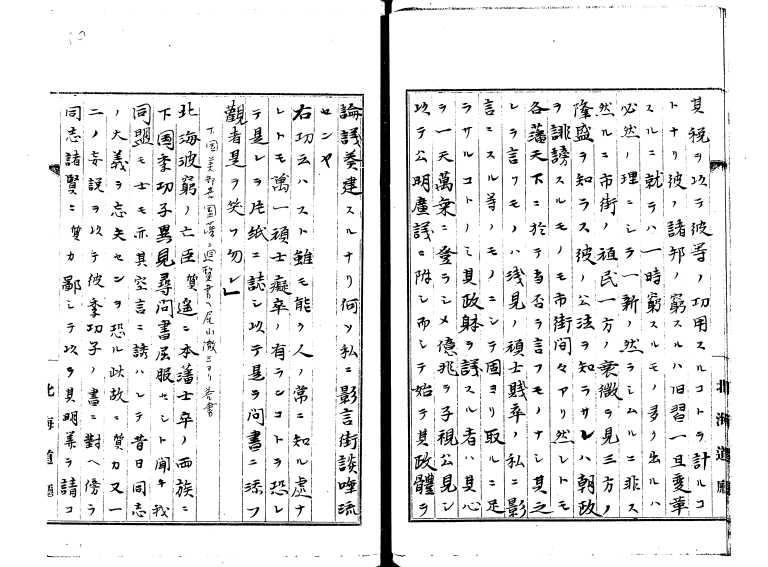 其税ヲ以テ彼等ノ功用スルコトヲ計ルコ
トナリ彼ノ諸邦ノ窮スルハ旧習一旦変革
スルニ就テハ一時窮スルモノ多ク出ルハ
必然ノ理ニシテ一新ノ然ラシムルニ非ス
然ルニ市街ノ殖民一方ノ衰微ヲ見三方ノ
隆盛ヲ知ラス彼ノ公法ヲ知ラサレハ朝政
ヲ誹謗スルモノモ市街間々アリ然レトモ
各藩天下ニ於テ当否ヲ言フモノナシ其之
レヲ言フモノハ浅見ノ頑士賎卒ノ私ニ影
言ニスル等ノモノニシテ固ヨリ取ルニ足
ラサルコトノミ其政躰ヲ謗スル者ハ其心
ヲ一天萬乗ニ登ラシメ億兆ヲ子視公見シ
以テ公明廬議ニ附シ而シテ始テ其政體ヲ
北海道廳
論議奏建スルナリ何ソ私ニ影言街談唑流
センヤ
右功立ハスト雖モ能ク人ノ常ニ知ル處ナ
レトモ萬一頑士癡卒ノ有ランコトヲ恐レ
テ是レヲ片紙ニ誌シ以テ是ヲ問書ニ添フ
観者是ヲ笑フ勿レ
北海波窮ノ亡臣賛遙ニ本藩士卒ノ西族ニ
下國季功子異見尋問書屈服セシト聞キ我
同盟モ士モ亦其空言ニ誘ハレテ昔日同志
ノ大義ヲ忘失センヲ恐ル此故ニ賛力又一
二ノ妄説ヲ以テ彼季功子ノ書ニ對ヘ傍ラ
同志諸賢ニ賛カ鄙シテ以ヲ其明義ヲ請コ
北海道廳